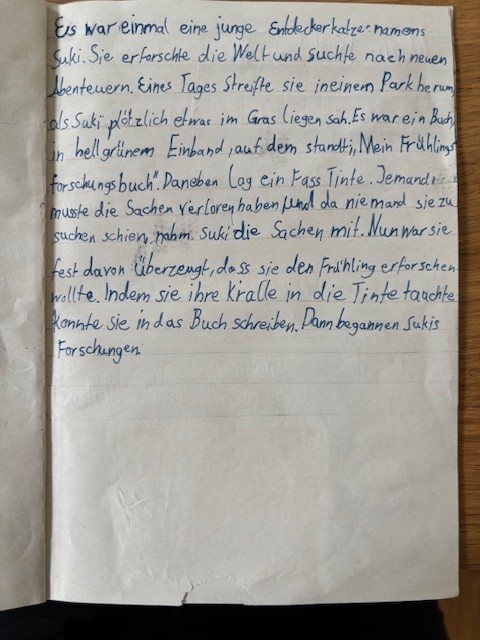 Es war einmal eine junge Entdeckerkatze namens
Suki. Sie erforschte die Welt und suchte nach neuen
Abenteuern. Eines Tages Streifte sie in einem Park herum,
als Suki plötzlich etwas im Gras liegen sah. Es war ein Buch,
in hellgrünem Einband, auf dem standt: „Mein Frühlings
forschungsbuch". Daneben Lag ein Fass Tinte. Jemand
musste die Sachen verloren haben und da niemand sie zu
suchen schien, nahm Suki die Sachen mit. Nun war sie
fest davon Überzeugt, dass sie den Frühling erforschen
wollte. Indem sie ihre Kralle in die Tinte tauchte
konnte sie in das Buch schreiben. Dann begannen Sukis
Forschungen.